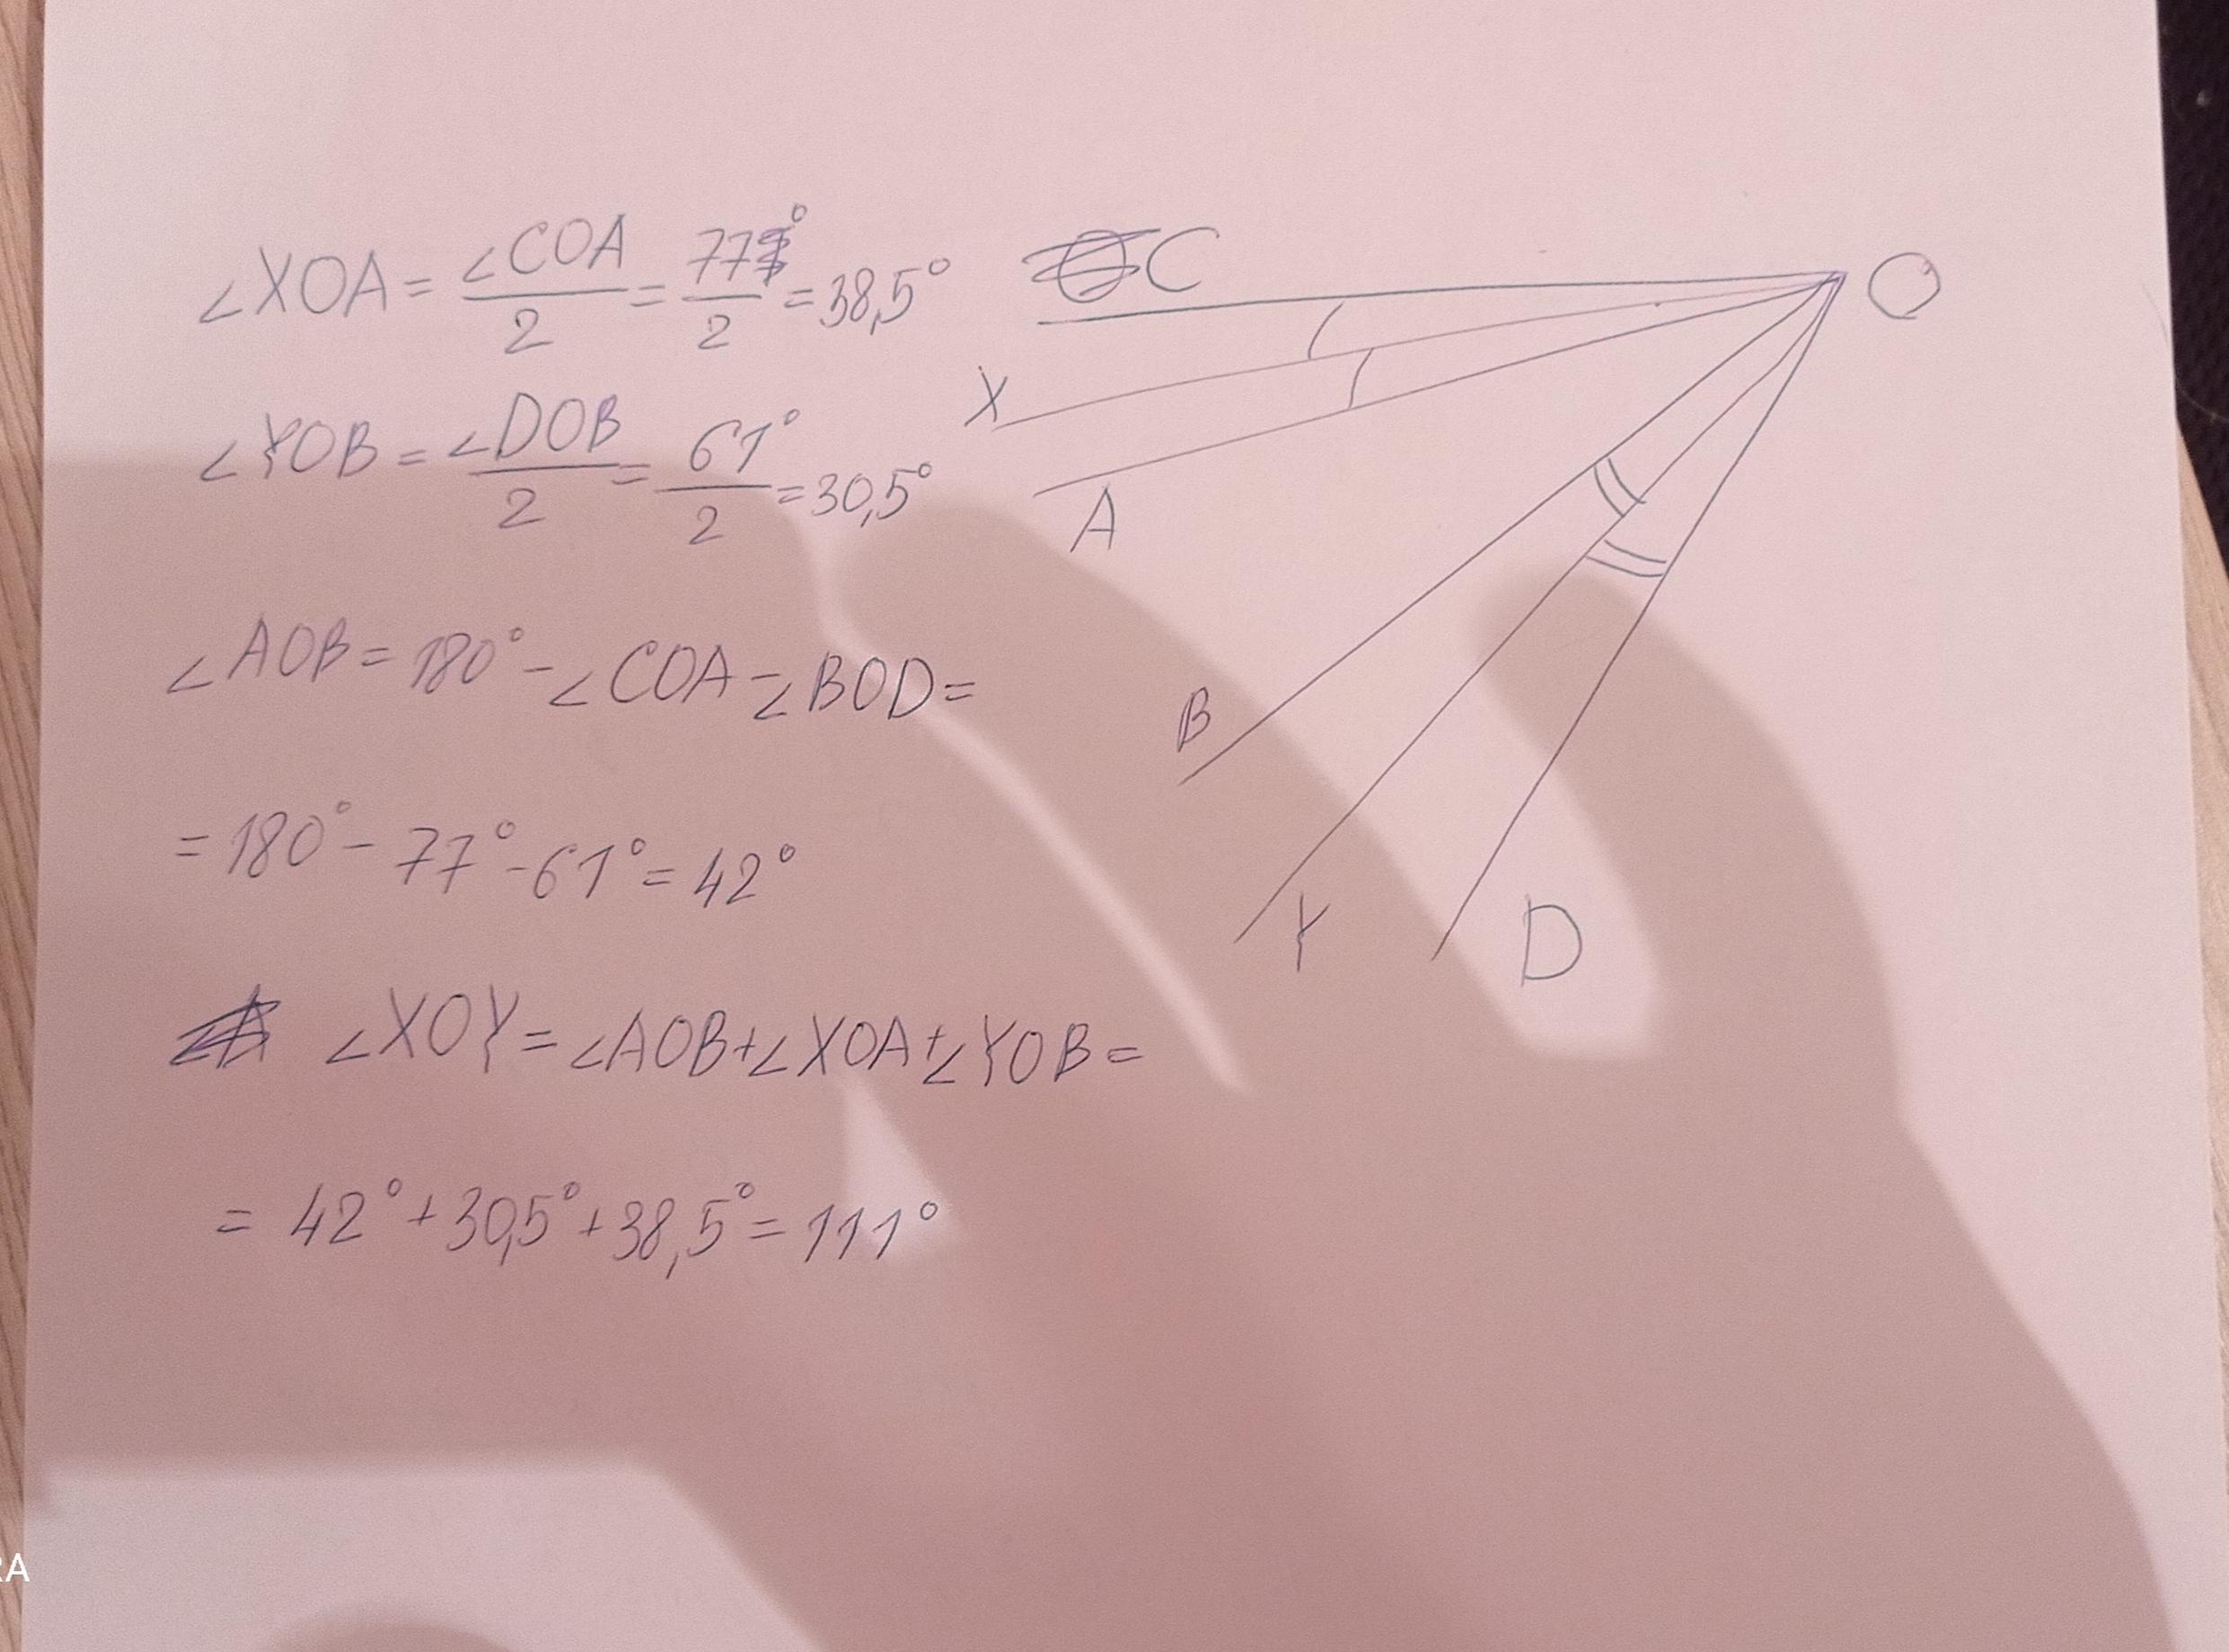 ∠XOA = ∠COA/2 = 77°/2 = 38,5°
C
O
∠YOB = ∠DOB/2 = 61°/2 = 30,5°
X
A
∠AOB = 180° - ∠COA - ∠BOD =
B
= 180° - 77° - 61° = 42°
Y
D
∠XOY = ∠AOB + ∠XOA + ∠YOB =
= 42° + 30,5° + 38,5° = 111°
RA